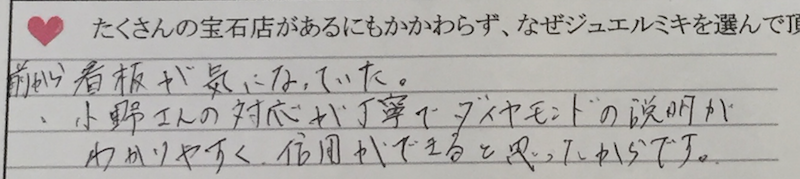 たくさんの宝石店があるにもかかわらず、なぜジュエルミキを選んで頂
前から看板が気になっていた。
、小野さんの対応が丁寧でダイヤモンドの説明が
わかりやすく、信用ができると思ったからです。